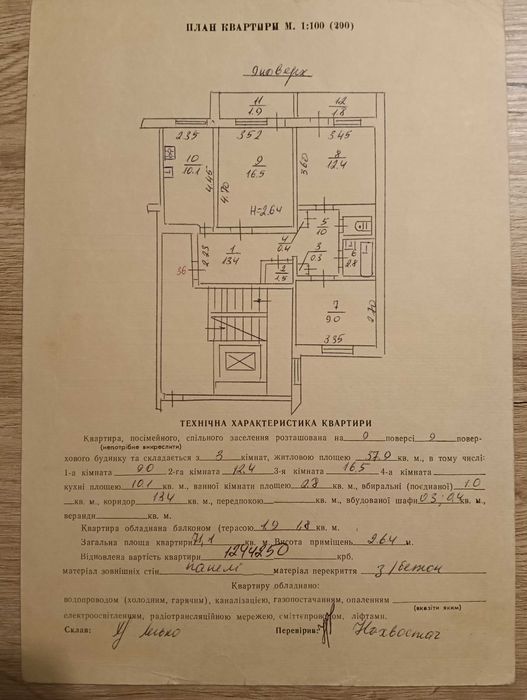 ПЛАН КВАРТИРИ М. 1:100 (200)
9 поверх
11
1.9
12
1.8
2.35
3.52
3.45
10
10.1
9
16.5
8
12.4
4.45
4.70
3.60
H=2.64
5
1.0
4
0.4
1
13.4
2.23
3
0.3
6
2.8
2
1.5
36
7
9.0
2.70
3.35
ТЕХНІЧНА ХАРАКТЕРИСТИКА КВАРТИРИ
Квартира, посімейного, спільного заселення розташована на 9 поверсі 9 повер-
(непотрібне викреслити)
хового будинку та складається з 3 кімнат, житловою площею 37.9 кв. м., в тому числі:
1-а кімната 9.0 2-га кімната 12.4 3-я кімната 16.5 4-а кімната
кухні площею 10.1 кв. м., ванної кімнати площею 2.8 кв. м., вбиральні (поєднаної) 1.0
кв. м., коридор 13.4 кв. м., передпокою кв. м., вбудованої шафи 0.3; 0.4 кв. м.,
веранди кв. м.
Квартира обладнана балконом (терасою) 1.9 1.8 кв. м.
Загальна площа квартири 71,1 кв. м. Висота приміщень 2.64 м.
Відновлена вартість квартири 1244250 крб.
матеріал зовнішніх стін панелі матеріал перекриття з/бетон
Квартиру обладнано:
водопроводом (холодним, гарячим), каналізацією, газопостачанням, опаленням
(вказіти яким)
електроосвітленням, радіотрансляційною мережею, сміттєпроводом, ліфтами.
Склав: Перевірив: